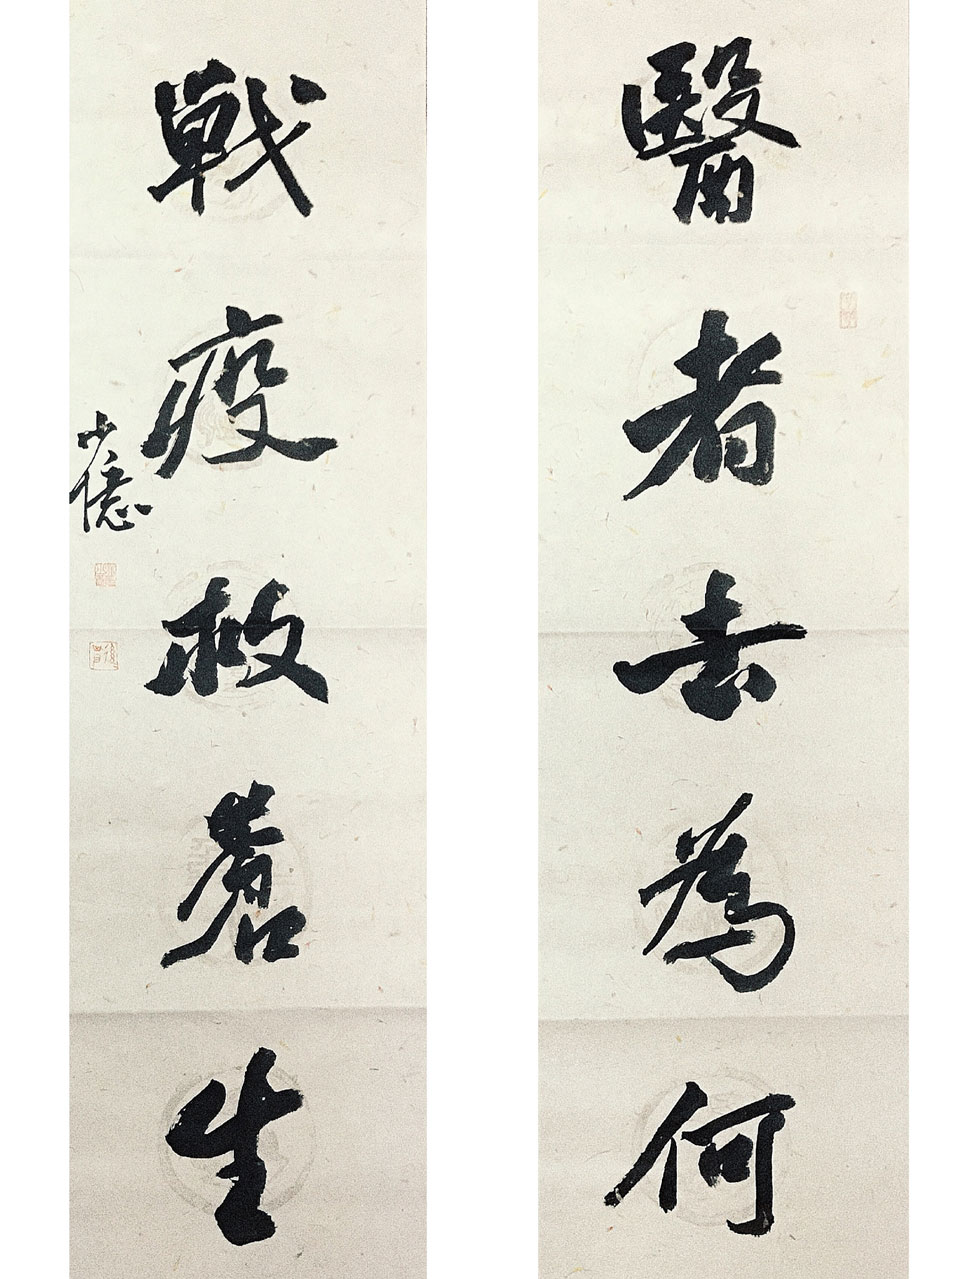 醫者去為何
戰疫救蒼生
少億